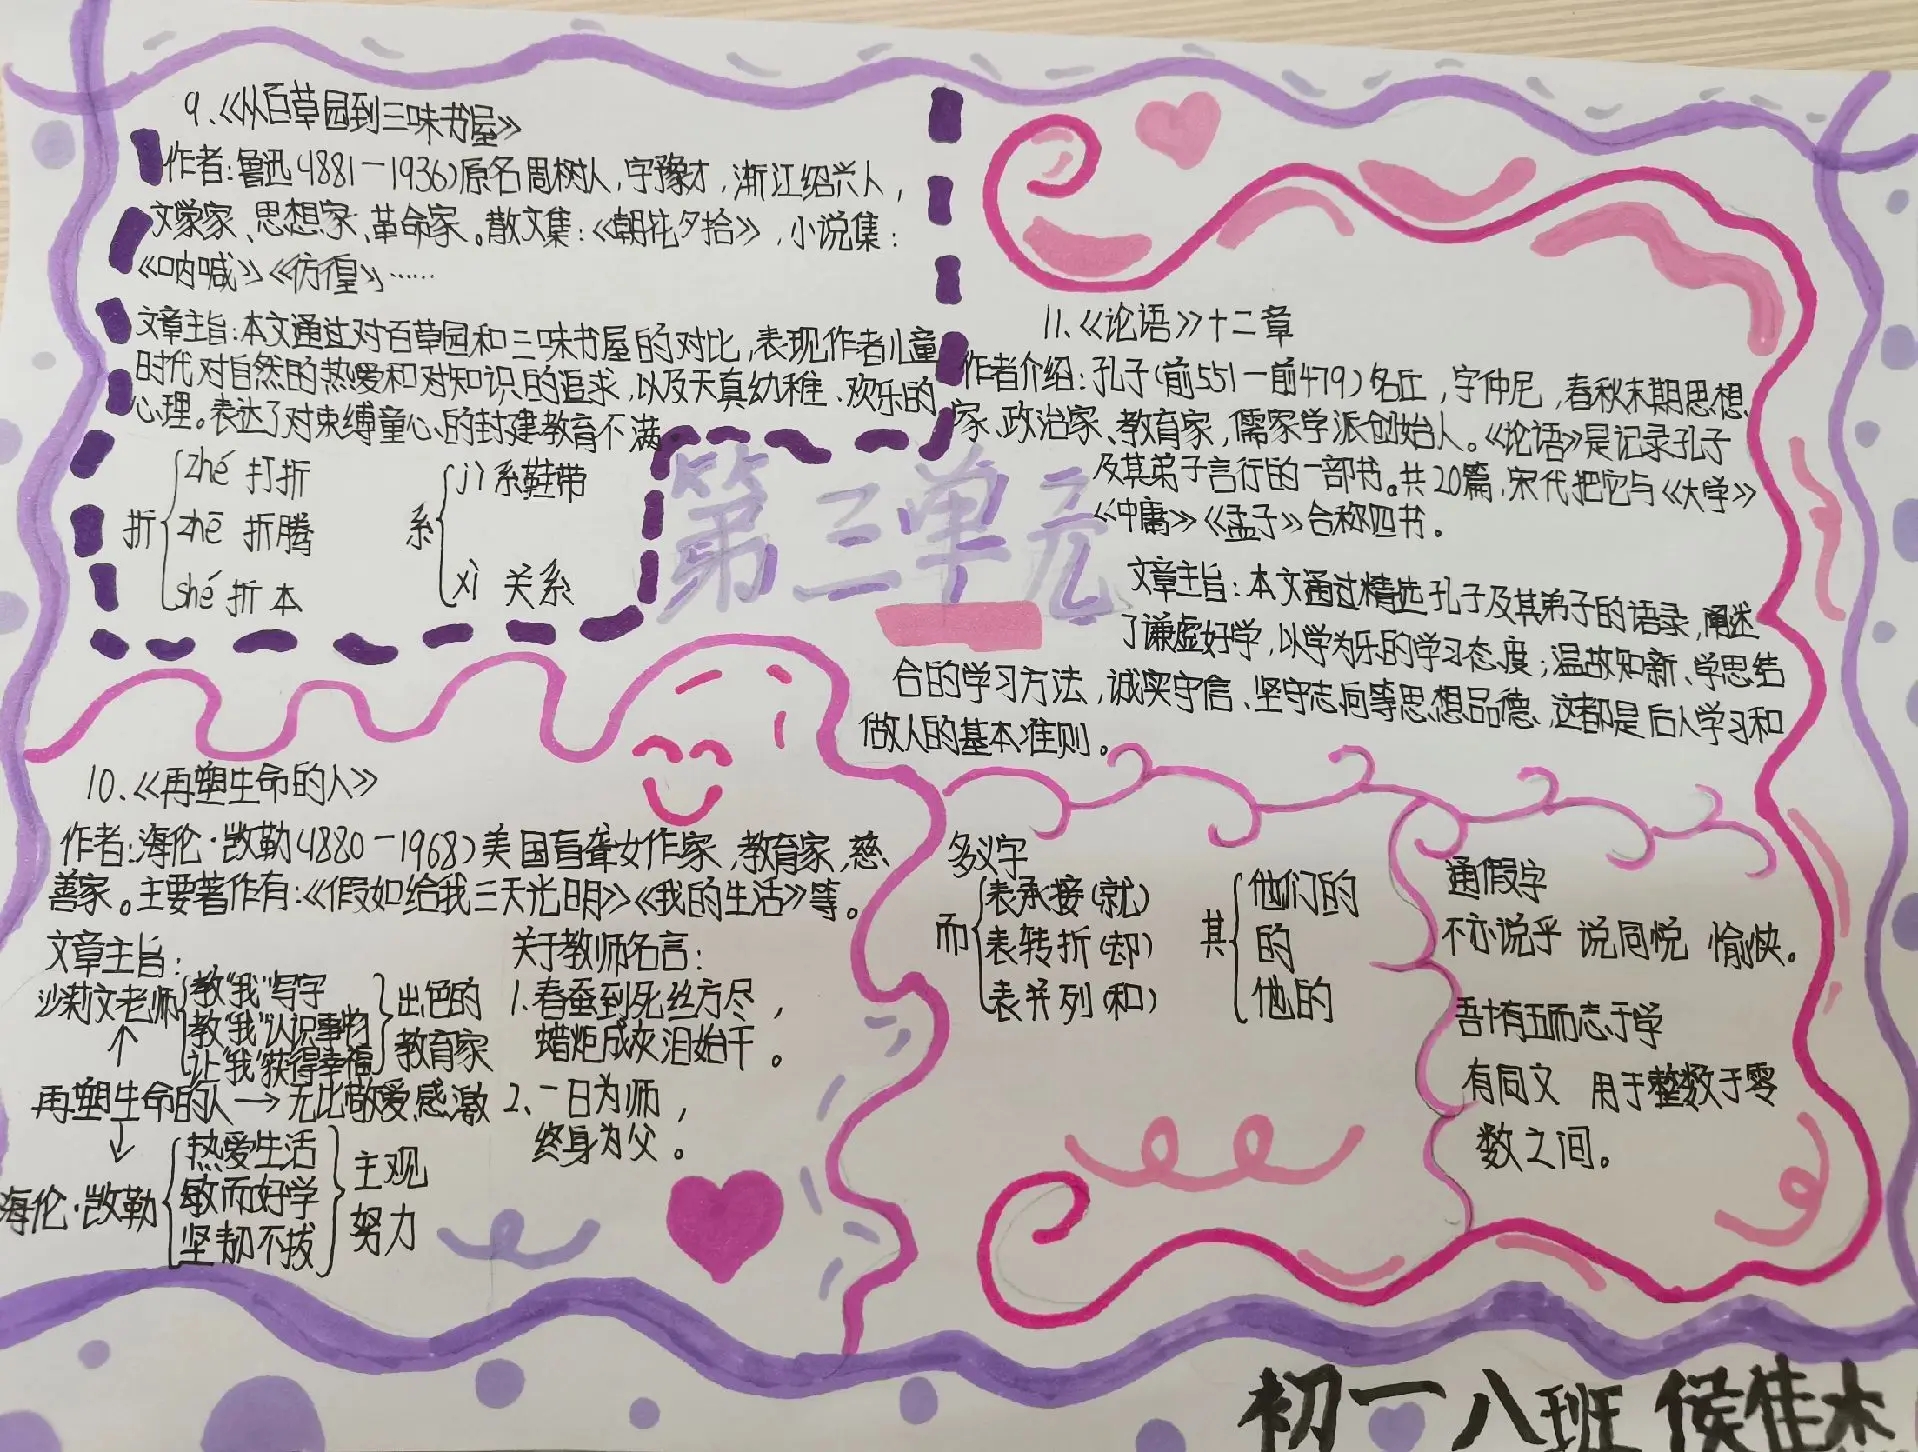 9、《从百草园到三味书屋》
作者:鲁迅(1881-1936)原名周树人,字豫才,浙江绍兴人,
文学家、思想家、革命家。散文集:《朝花夕拾》,小说集:
《呐喊》《彷徨》……
文章主旨:本文通过对百草园和三味书屋的对比,表现作者儿童
时代对自然的热爱和对知识的追求,以及天真幼稚、欢乐的
心理。表达了对束缚童心的封建教育不满。
折
zhé 打折
zhē 折腾
shé 折本
系
jì 系鞋带
xì 关系
第三单元
10、《再塑生命的人》
作者:海伦·凯勒(1880-1968)美国盲聋女作家、教育家,慈
善家。主要著作有:《假如给我三天光明》《我的生活》等。
文章主旨:
沙莉文老师
教“我”写字
教“我”认识事物
让“我”获得幸福
出色的
教育家
↑
再塑生命的人→无比敬爱感激
↓
海伦·凯勒
热爱生活
敏而好学
坚韧不拔
主观
努力
关于教师名言:
1.春蚕到死丝方尽,
蜡炬成灰泪始干。
2、一日为师,
终身为父。
11、《论语》十二章
作者介绍:孔子(前551-前479)名丘,字仲尼,春秋末期思想
家、政治家、教育家,儒家学派创始人。《论语》是记录孔子
及其弟子言行的一部书。共20篇,宋代把它与《大学》
《中庸》《孟子》合称四书。
文章主旨:本文通过精选孔子及其弟子的语录,阐述
了谦虚好学,以学为乐的学习态度;温故知新、学思结
合的学习方法,诚实守信、坚守志向等思想品德,这都是后人学习和
做人的基本准则。
多义字
而
表承接(就)
表转折(却)
表并列(和)
其
他们的
的
他的
通假字
不亦说乎 说同悦 愉快。
吾十有五而志于学
有同又 用于整数于零
数之间。
初一八班 侯佳木